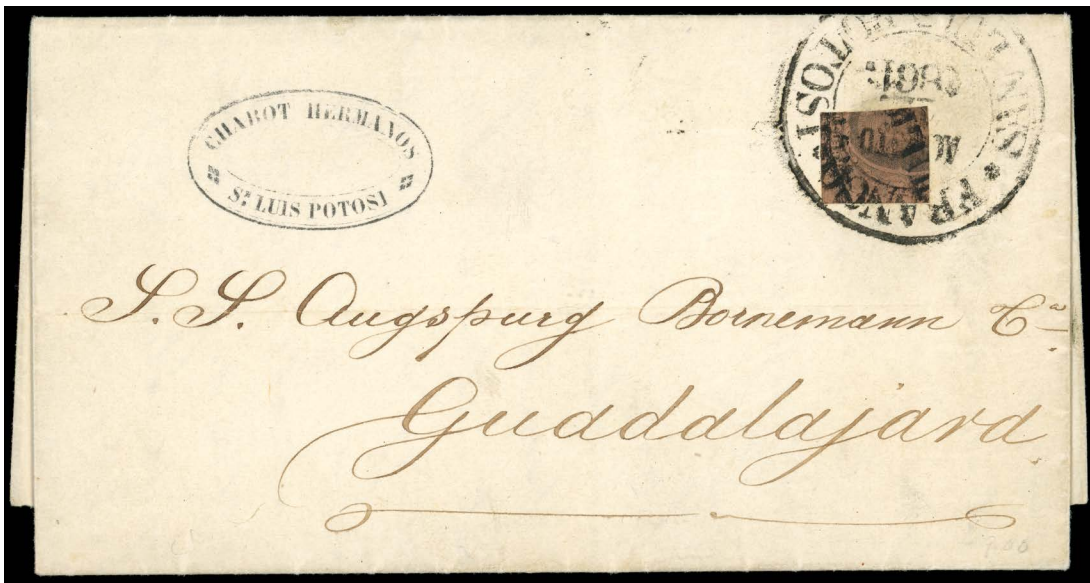 CHABOT HERMANOS
Sn LUIS POTOSI
FRANCO * SAN LUIS POTOSI *
1861
S. S. Augspurg Bornemann Ca.
Guadalajara